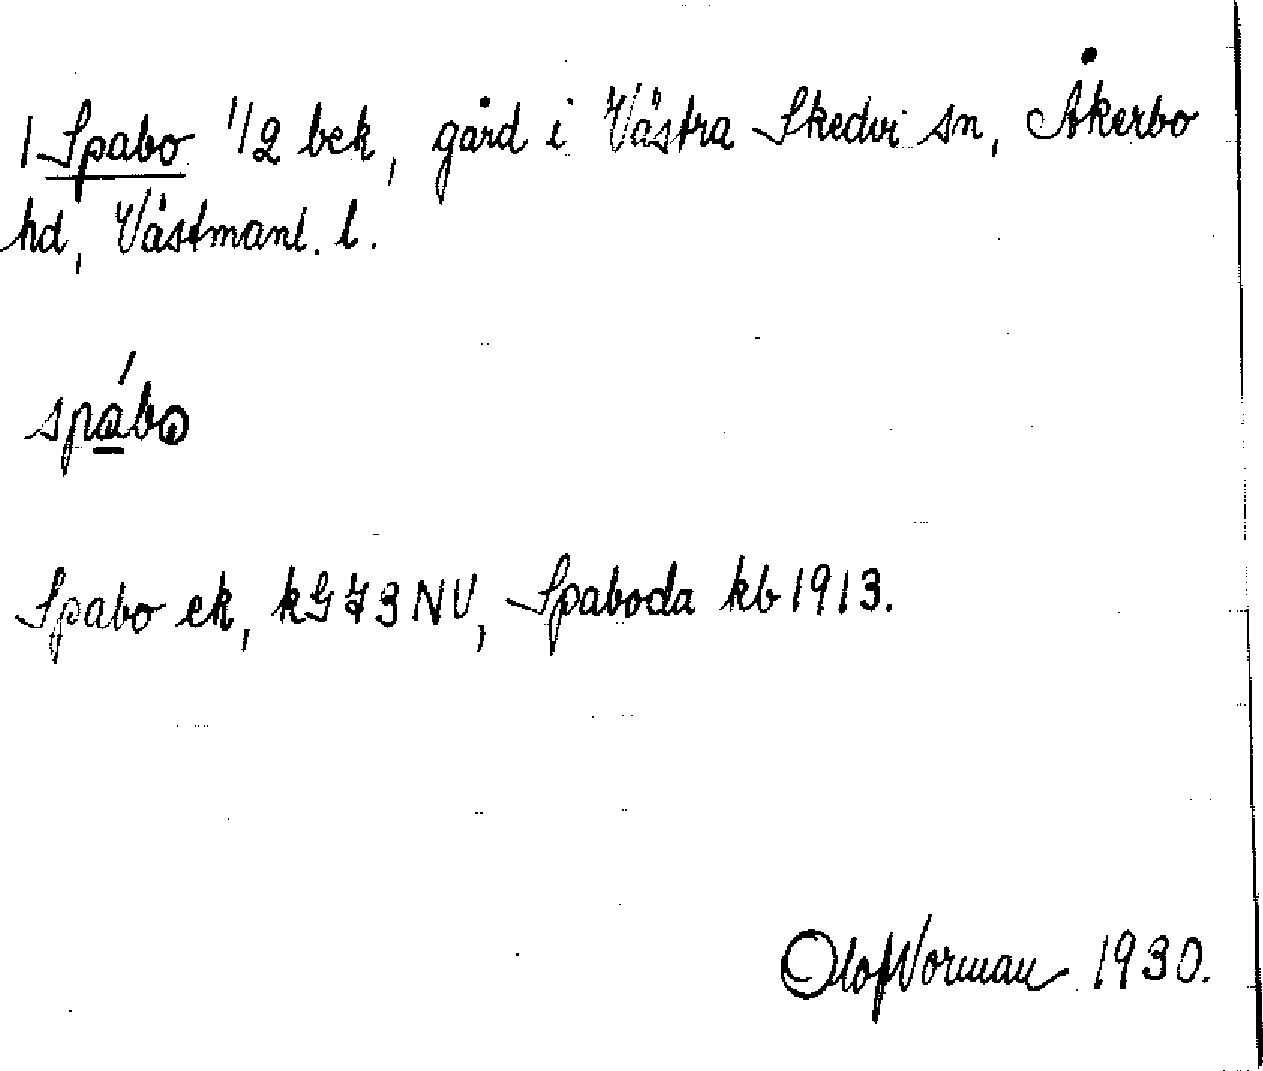 1 Spabo 1/2 bek, gård i Västra Skedvi sn, Åkerbo
hd, Västmanl. l.
spábo
Spabo ek, kG73NV, Spaboda kb 1913.
Olof Norman 1930.